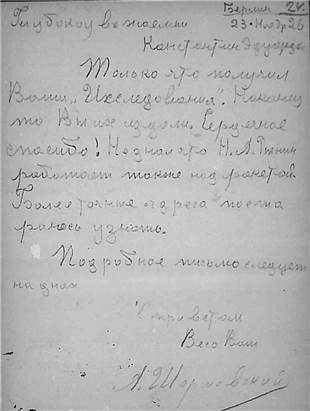 Берлин 24.
23 Нояб 26
Глубокоуважаемый
Константин Эдуардо
Только что получил
Ваши „Исследования". Наконец
то Вы их издали. Сердечное
спасибо! Не знал что Н. А. Рынин
работает также над ракетой.
Более точные адреса поста
раюсь узнать.
Подробное письмо следует
на днях
С приветом
Весь Ваш
А. Шершевский